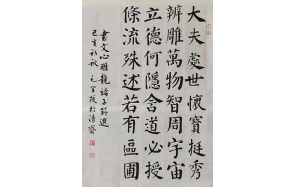 大夫處世懷寶挺秀
辨雕萬物智周宇宙
立德何隱含道必授
條流殊述若有區囿
書文心雕龍諸子篇選
己亥初秋